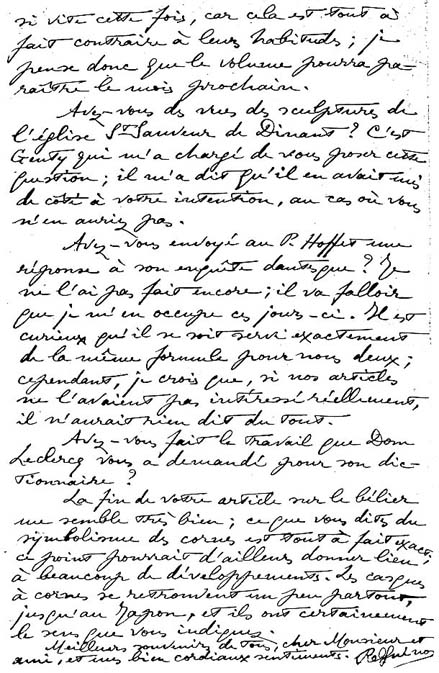 si vite cette fois, car cela est tout à
fait contraire à leurs habitudes ; je
pense donc que le volume pourra pa-
raître le mois prochain.
Avez-vous des vues des sculptures de
l'église St Sauveur de Dinant ? C'est
Genty qui m'a chargé de vous poser cette
question ; il m'a dit qu'il en avait mis
de côté à votre intention, au cas où vous
n'en auriez pas.
Avez-vous envoyé au P. Hoffet une
réponse à son enquête dantesque ? Je
ne l'ai pas fait encore ; il va falloir
que je m'en occupe ces jours-ci. Il est
curieux qu'il se soit servi exactement
de la même formule pour nous deux ;
cependant, je crois que, si nos articles
ne l'avaient pas intéressé réellement,
il n'aurait rien dit du tout.
Avez-vous fait le travail que Dom
Leclercq vous a demandé pour son dic-
tionnaire ?
La fin de votre article sur le bélier
me semble très bien ; ce que vous dites du
symbolisme des cornes est tout à fait exact ;
ce point pourrait d'ailleurs donner lieu
à beaucoup de développements. Les casques
à cornes se retrouvent un peu partout,
jusqu'au Japon, et ils ont certainement
le sens que vous indiquez.
Meilleurs souvenirs de tous, cher Monsieur et
ami, et mes bien cordiaux sentiments.